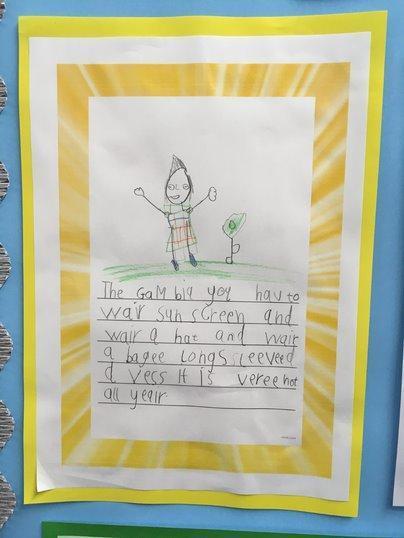 The GaMbia you hav to
wair sun screen and
wair a hat and wair
a bagee Longsleeveed
d ress It is veree hot
all yeair